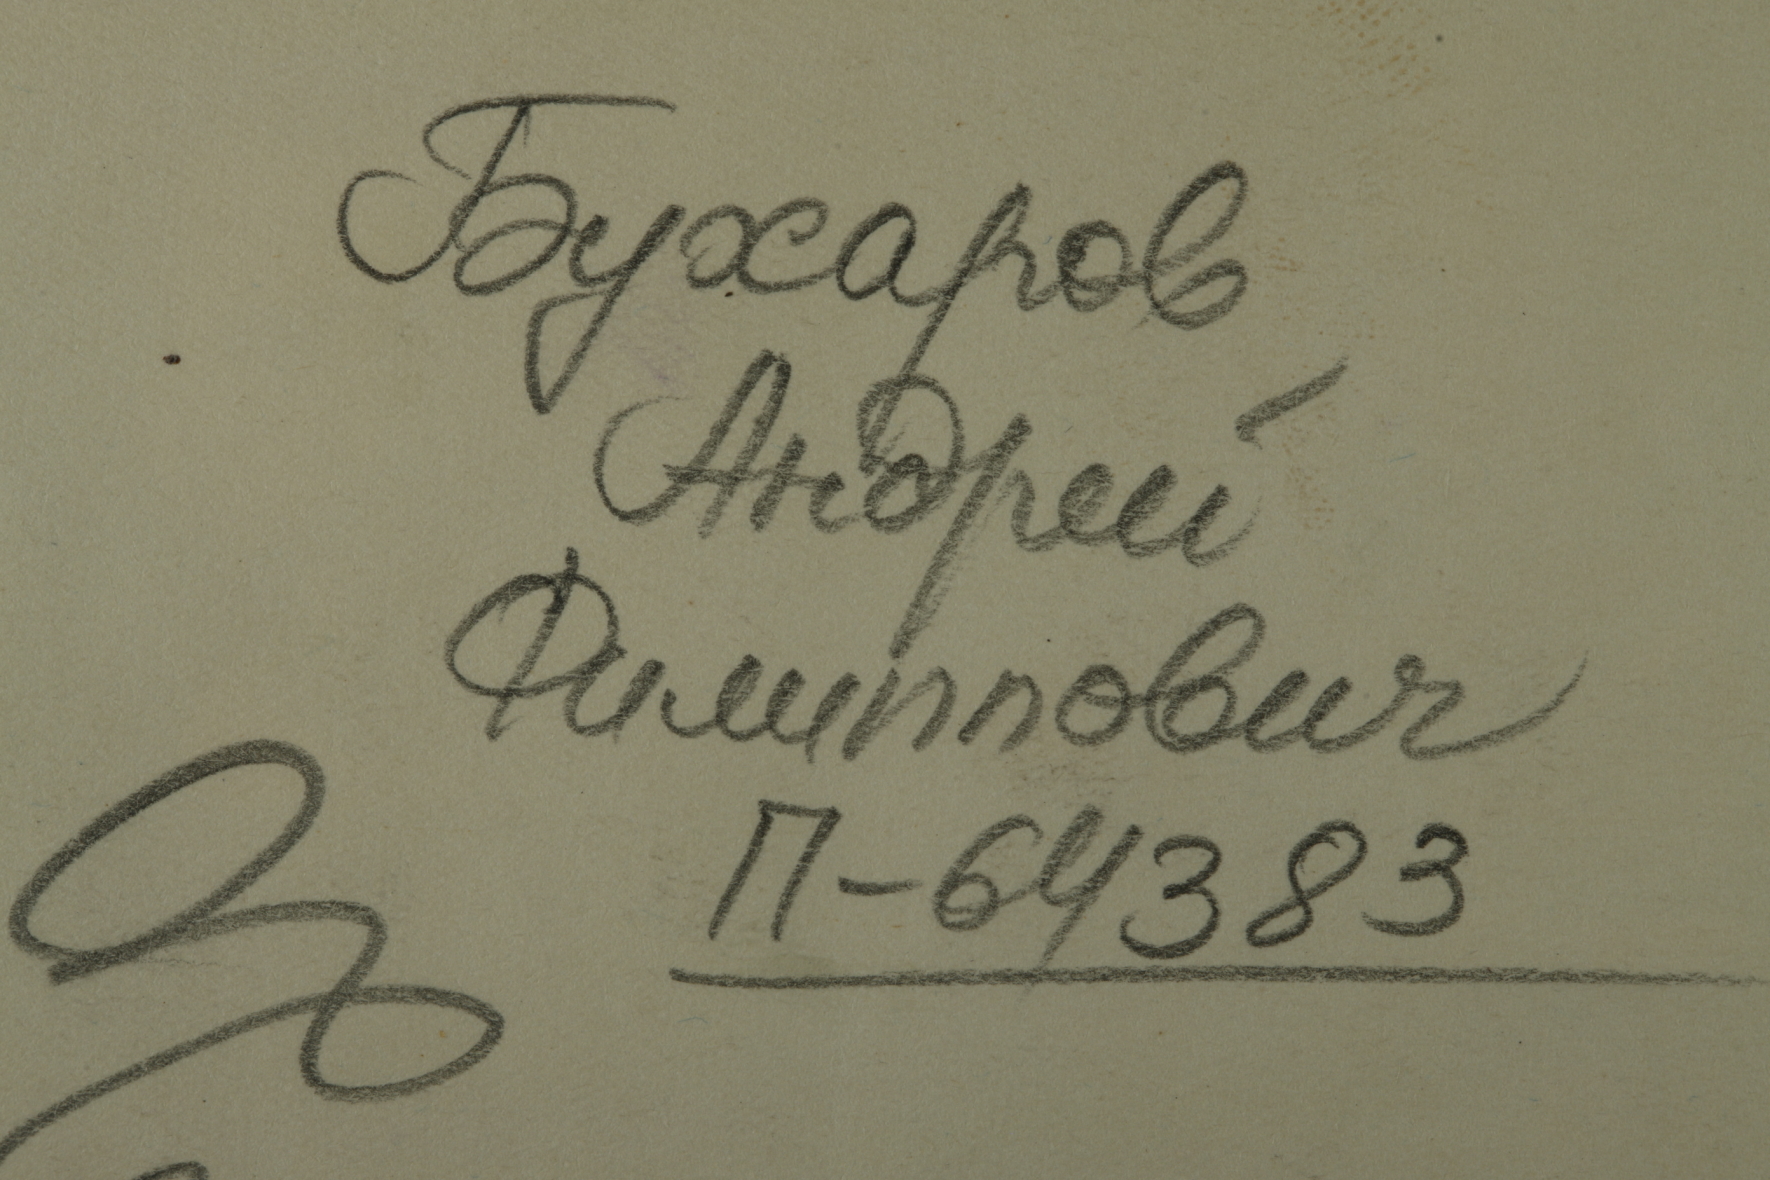 Бухаров
Андрей
Филиппович
П-64383